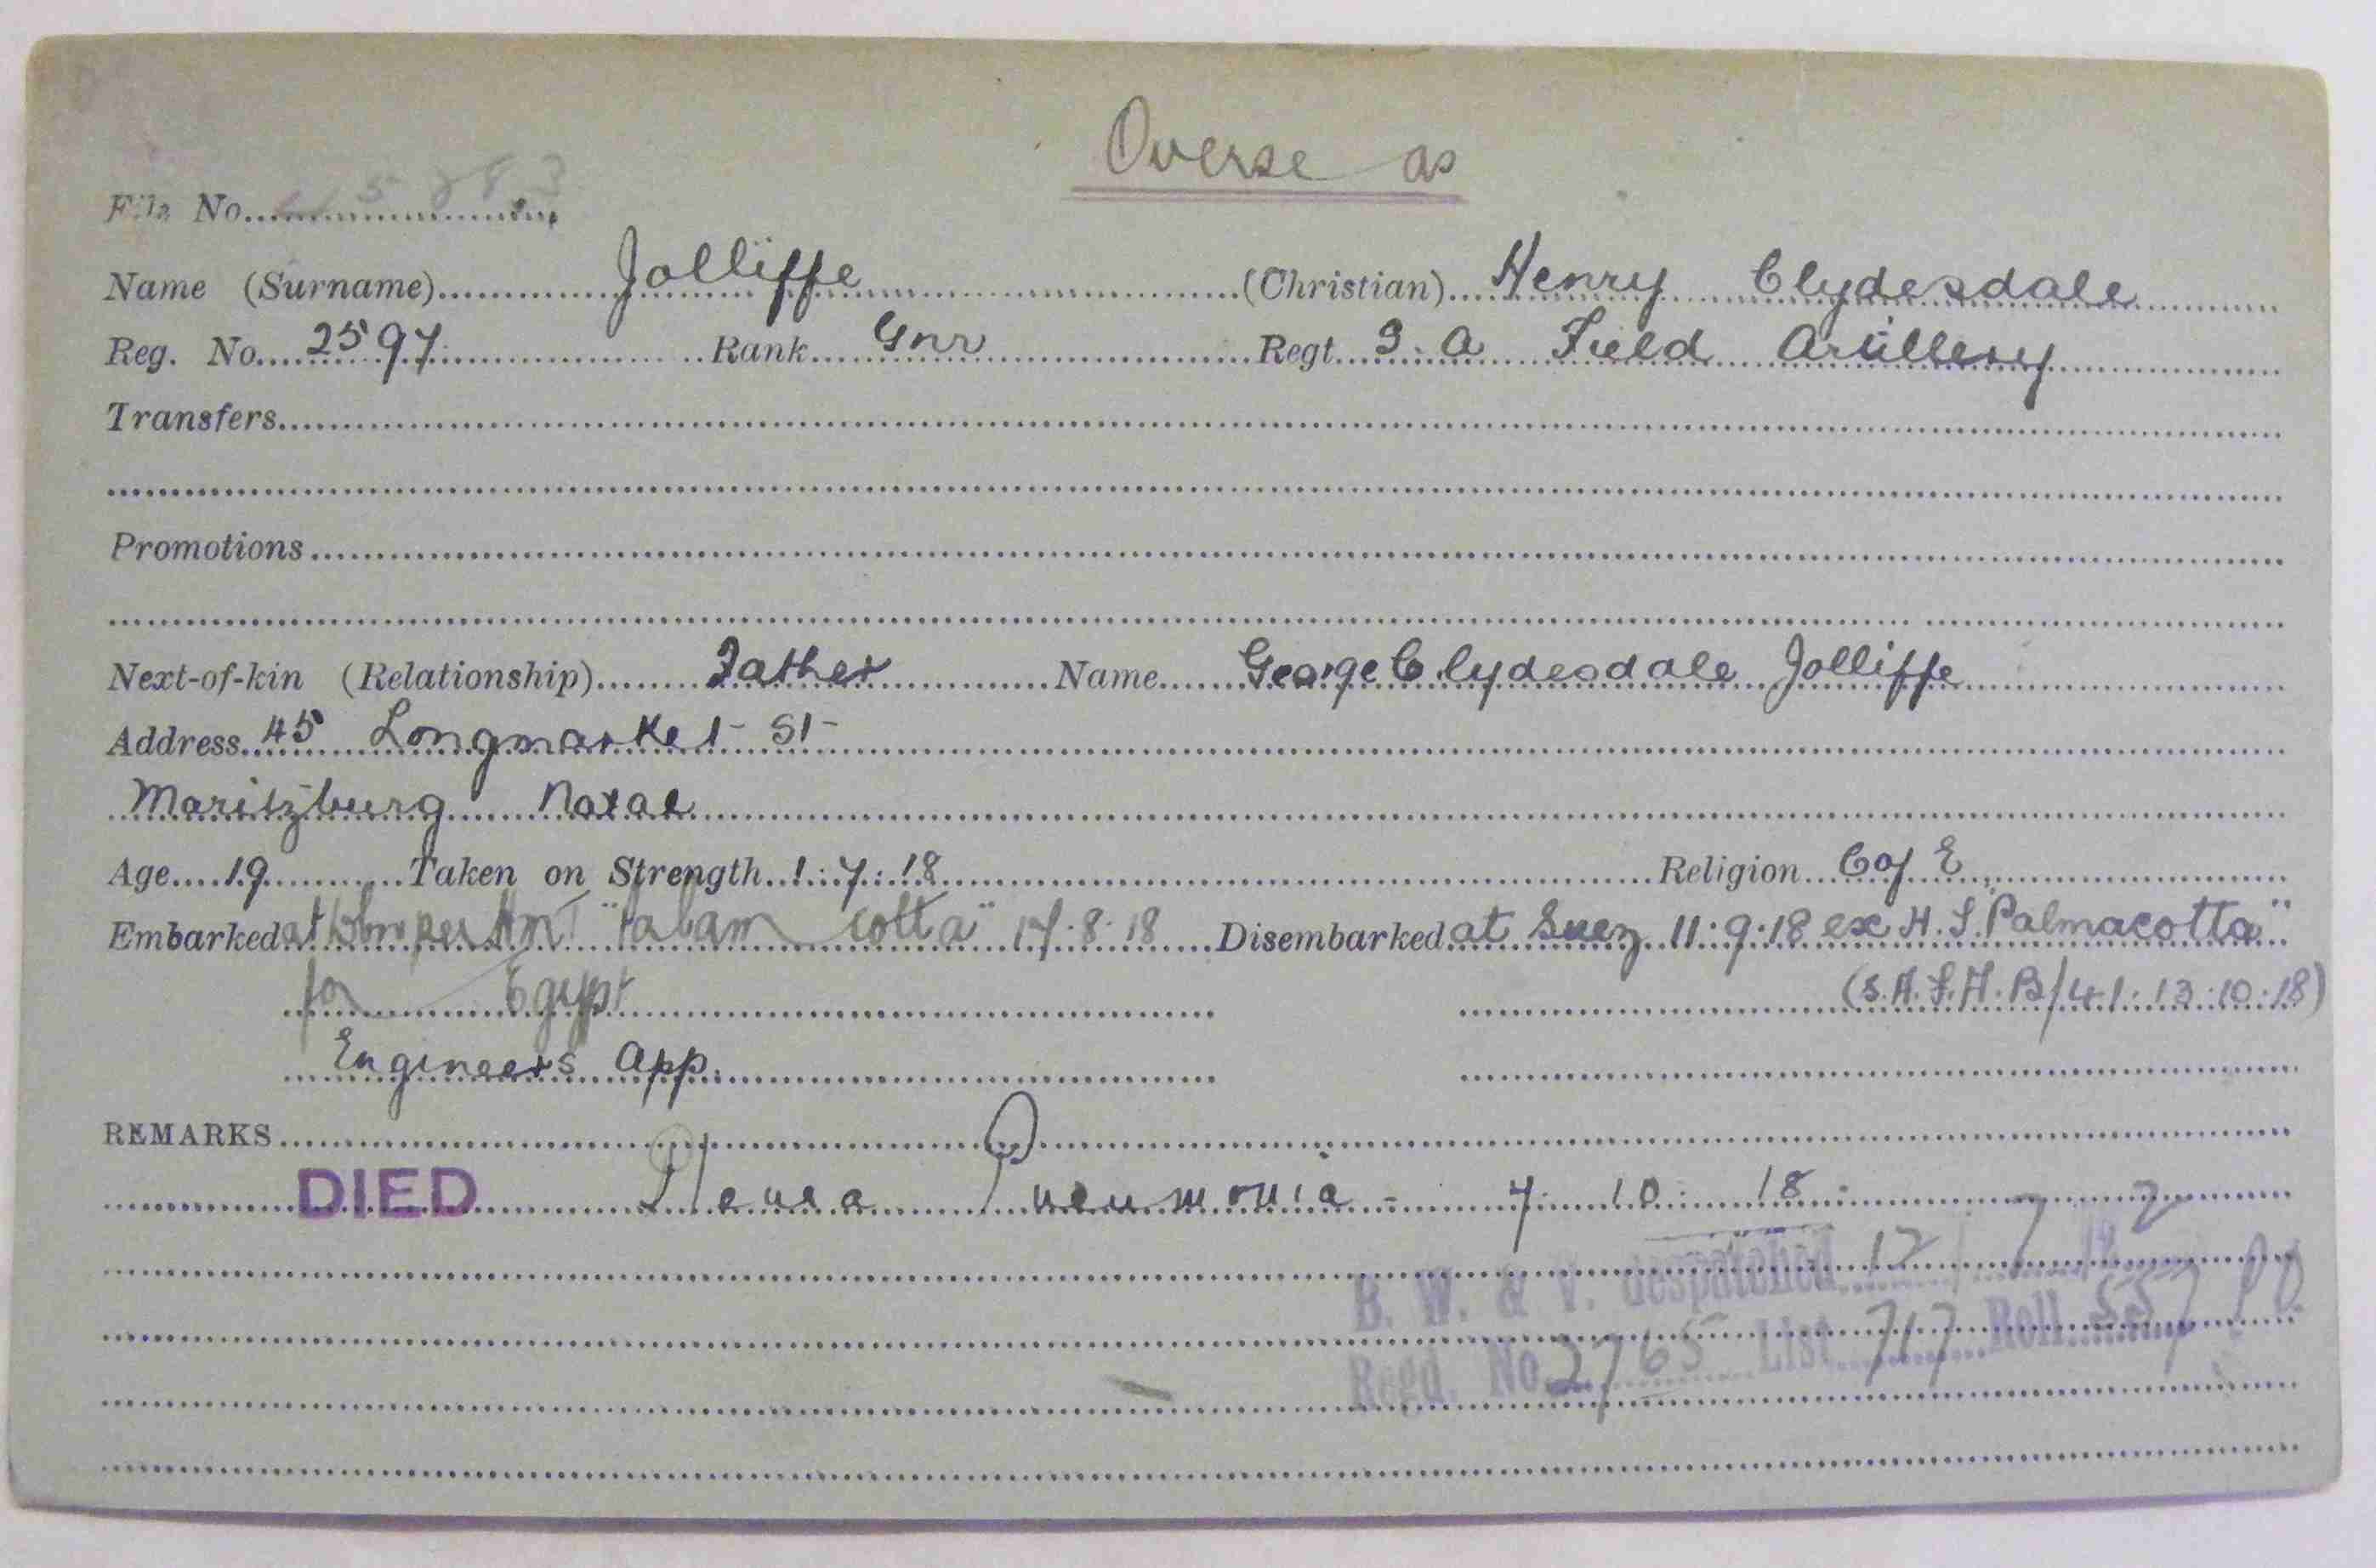 Overseas
File No.
Name (Surname) Jolliffe (Christian) Henry Clydesdale
Reg. No. 2597 Rank Gnr Regt. S.A Field Artillery
Transfers
Promotions
Next-of-kin (Relationship) Father Name George Clydesdale Jolliffe
Address 45 Longmarket St
Maritzburg Natal
Age 19 Taken on Strength 1:7:18 Religion C of E
Embarked at per "Palamcotta" 17.8.18 Disembarked at Suez 11:9:18 ex H.S. Palmacotta"
for Egypt (S.A.F.A.B/41:13:10:18)
Engineers App.
REMARKS
DIED Pleura Pneumonia - 7: 10: 18
B. W. & V. despatched 12
Regd. No. 2765 List 717 Roll 557